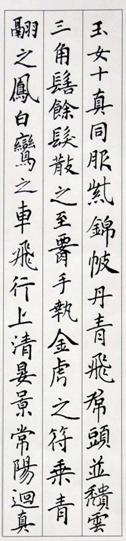 玉女十真同服紫錦帔丹青飛帬頭並穨雲
三角髻餘髮散之至腰手執金虎之符乘青
翮之鳳白鸞之車飛行上清晏景常陽迴真